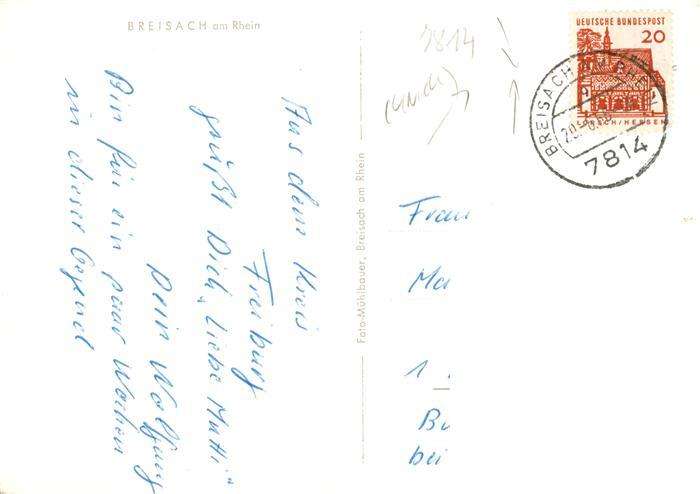 BREISACH am Rhein
Aus dem Kreis
Freiburg
grüßt Dich, Liebe Mutti"
Dein Wolfgang
Bin für ein paar Wochen
in dieser Gegend
Foto-Mühlbauer, Breisach am Rhein
7814
DEUTSCHE BUNDESPOST
20
LORSCH/HESSEN
BREISACH AM RHEIN
7814
Frau
Ma
1.
Bu
bei